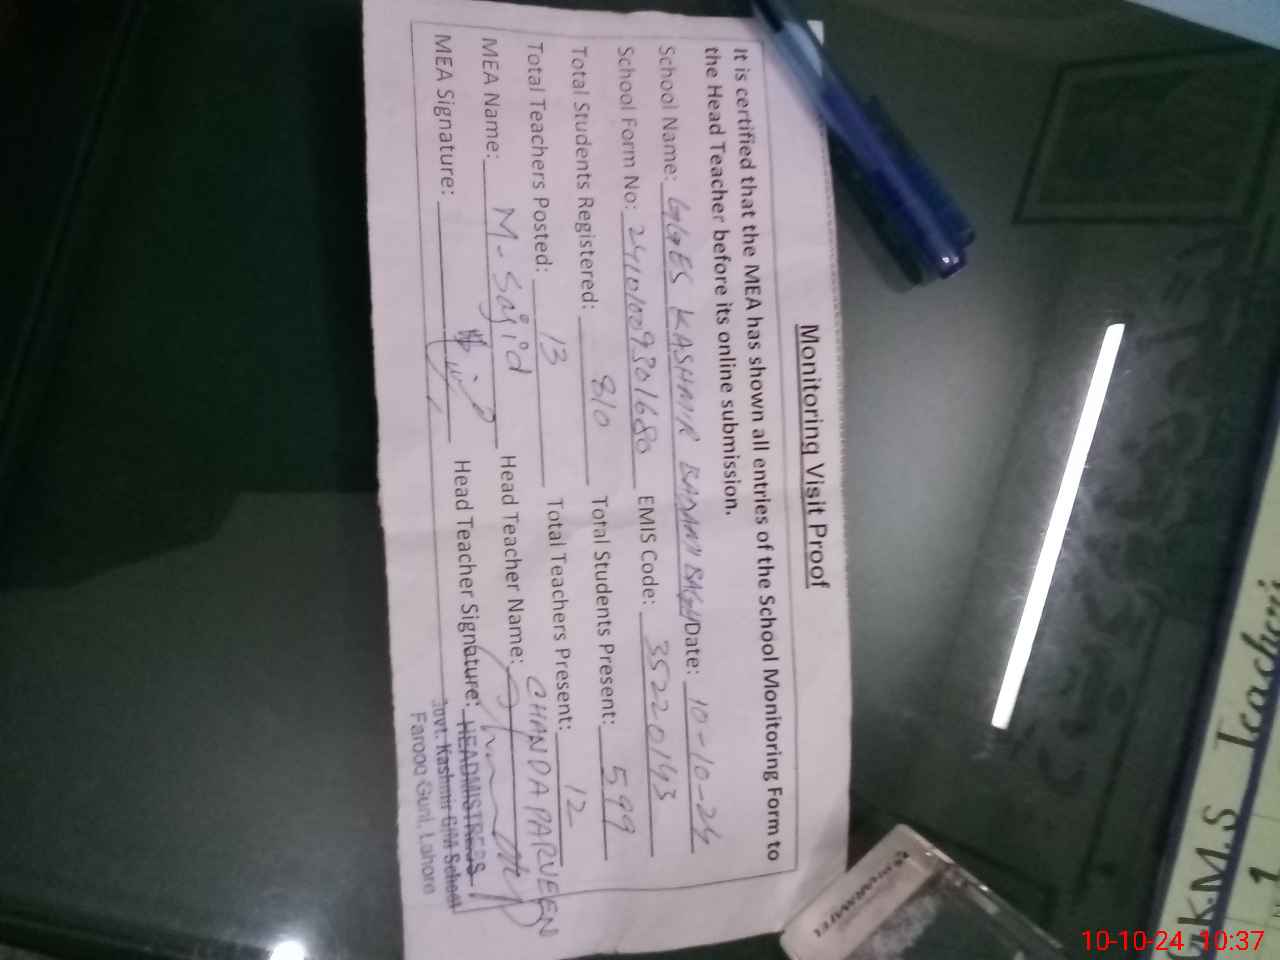 Monitoring Visit Proof
It is certified that the MEA has shown all entries of the School Monitoring Form to
the Head Teacher before its online submission.
School Name: GGES KASHMIR BADAMI BAGH Date: 10-10-24
School Form No: 24101009301680 EMIS Code: 35220143
Total Students Registered: 810 Total Students Present: 599
Total Teachers Posted: 13 Total Teachers Present: 12
MEA Name: M. Sajid Head Teacher Name: CHANDA PARVEEN
MEA Signature: Head Teacher Signature:
HEADMISTRESS
Govt. Kashmir G/M School
Farooq Gunj, Lahore
G.K.M.S Teacher
1
10-10-24 10:37